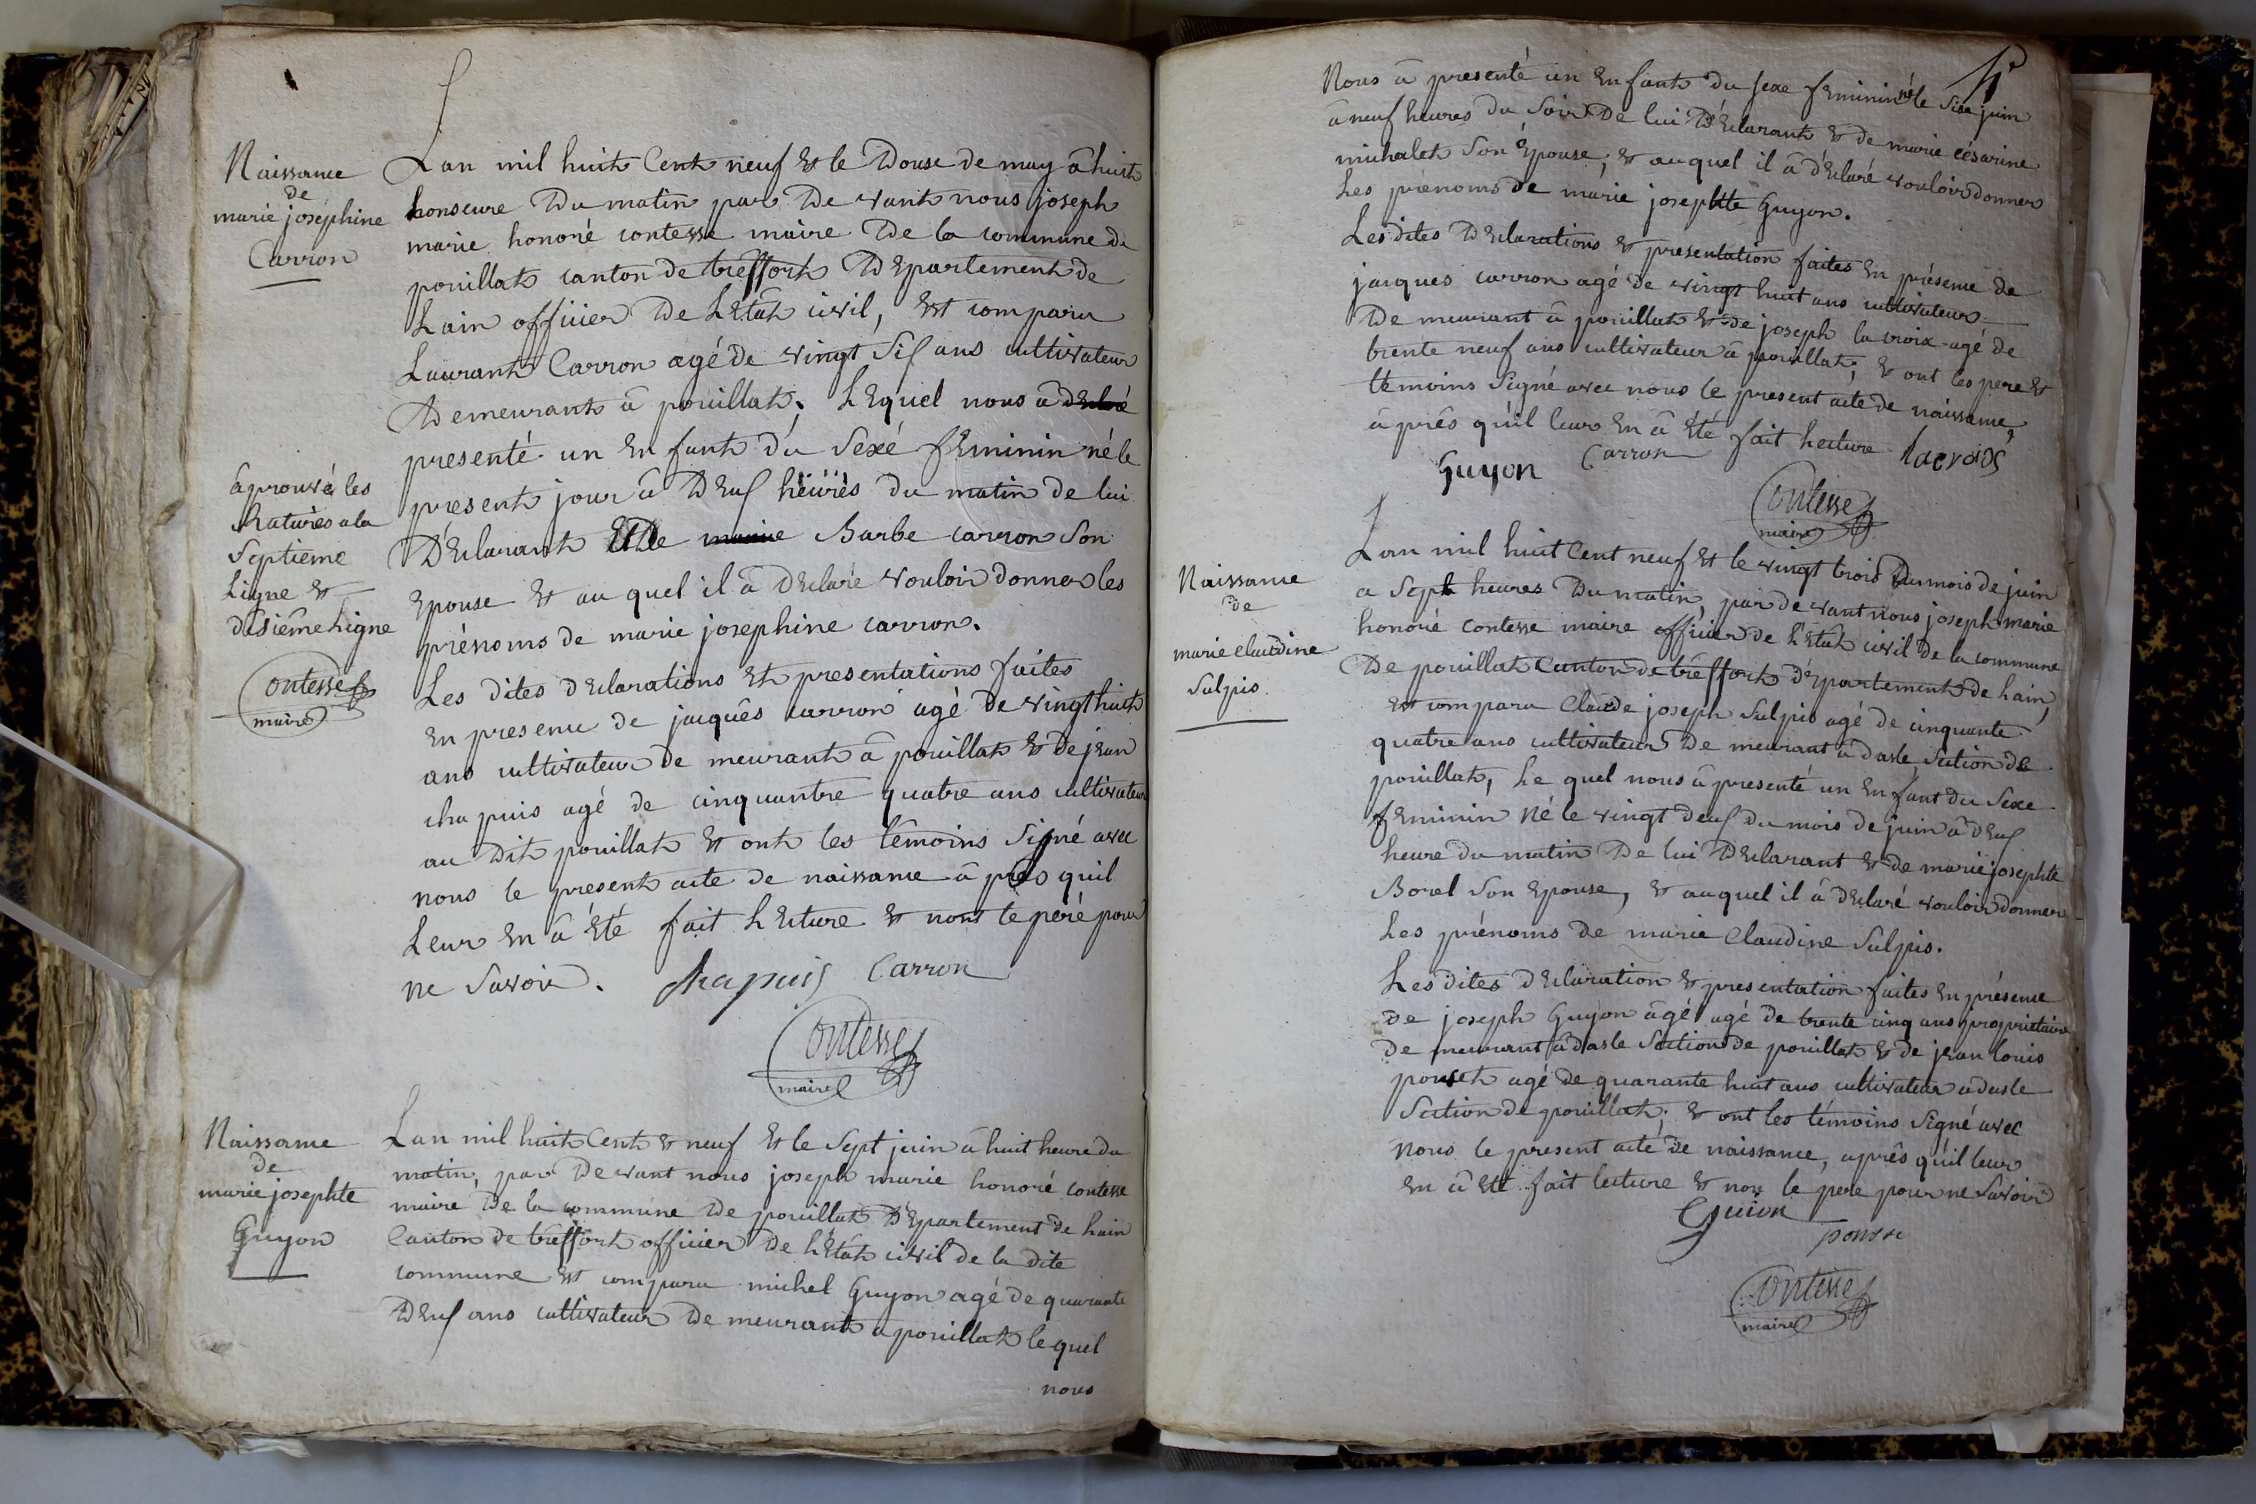 Naissance
de
marie joséphine
Carron
Lan mil huit Cent neuf Et le Douse de may â huit
honseure Du matin par De vant nous joseph
marie honoré contesse maire De la commune de
pouillat canton de treffort DEpartement de
Lain officier De LEtât civil, Est comparu
Laurant Carron agé de vingt Six ans cultivateur
Demeurant â pouillat. LEquel nous â
presenté un En fant du Sexé fEminin né le
present jour â DEux heures du matin de lui
DÉclarant Et De Barbe carron Son
Epouse Et au quel il â DEclaré vouloir donner les
prénoms de marie josephine carron.
Les dites dEclarations Et presentations faites
En presence de jacques carron agé de vingt huit
ans cultivateur de meurant â pouillat Et de jean
cha puis agé de cinquantre quatre ans cultivateur
au Dit pouillat Et ont les témoins Signé avec
nous le present acte de naissance â près quil
Leur En â Eté fait hEcture Et nont le peré pour
ne Savoir. Chapuis Carron
Contesse
maire
âprouvé les
Ratures a la
Septieme
Ligne Et
dixiême Ligne
Contesse
maire
Naissance
de
marie josephte
Guyon
Lan mil huit Cent Et neuf Et le Sept juin â huit heure du
matin, par De vant nous joseph marie honoré contesse
maire De la commune De pouillat DEpartement de hain
Canton de treffort officier De LEtât civil de la dite
commune Est comparu michel Guyon agé de quarante
DEux ans cultivateur De meurant a pouillat le quel
nous
Nous â presenté un En fant du Sexe feminin né le Six juin
â neuf heures du Soir De lui DÉclarant Et de marie césarine
michalet Son Epouse, Et auquel il â dÉclaré vouloir donner
Les prénoms de marie josephte Guyon.
Les dites DEclarations Et presentation faites En présence de
jacques carron agé de vingt huit ans cultivateur
De meurant â pouillat Et de joseph la croix agé de
trente neuf ans cultivateur â pouillat; Et ont les pere Et
témoins Signé avec nous le present acte de naissance,
â prês qu'il leur En â Eté fait hecture lacroix
Guyon Carron
Contesse
maire
Naissance
de
marie claudine
Sulpis
Lan mil huit Cent neuf Et le vingt trois Du mois de juin
a Sept heures Du matin, par de vant nous joseph marie
honoré contesse maire officier de l'Etât civil de la commune
De pouillat Canton de treffort dÉpartement de hain,
Est comparu Claude joseph Sulpis agé de cinquante
quatre ans cultivateur De meurant â dasle Section de
pouillat, Le quel nous â presenté un En fant du Sexe
fEminin Né le vingt deux du mois de juin â dEux
heure du matin De lui DEclarant Et de marie josephte
Borel Son Epouse, Et auquel il â dEclaré vouloir donner
Les prénoms de marie Claudine Sulpis.
Les dites dEclaration Et presentation faites En présence
De joseph Guyon âgé agé de trente cinq ans propriétaire
de meurant â dasle Section de pouillat Et de jean louis
ponset agé de quarante huit ans cultivateur a dasle
Section de pouillat; Et ont les témoins Signé avec
Nous le present acte de naissance, aprês qu'il leur
En â Eté fait lecture Et non le pere pour ne Savoir
Guion
ponsse
Contesse
maire